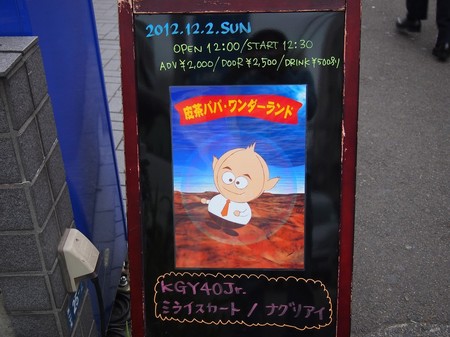 2012.12.2.SUN
OPEN 12:00/START 12:30
ADV ¥2,000/DOOR ¥2,500/DRINK ¥500別
皮茶パパ・ワンダーランド
KGY40Jr.
ミライスカート / ナグリアイ